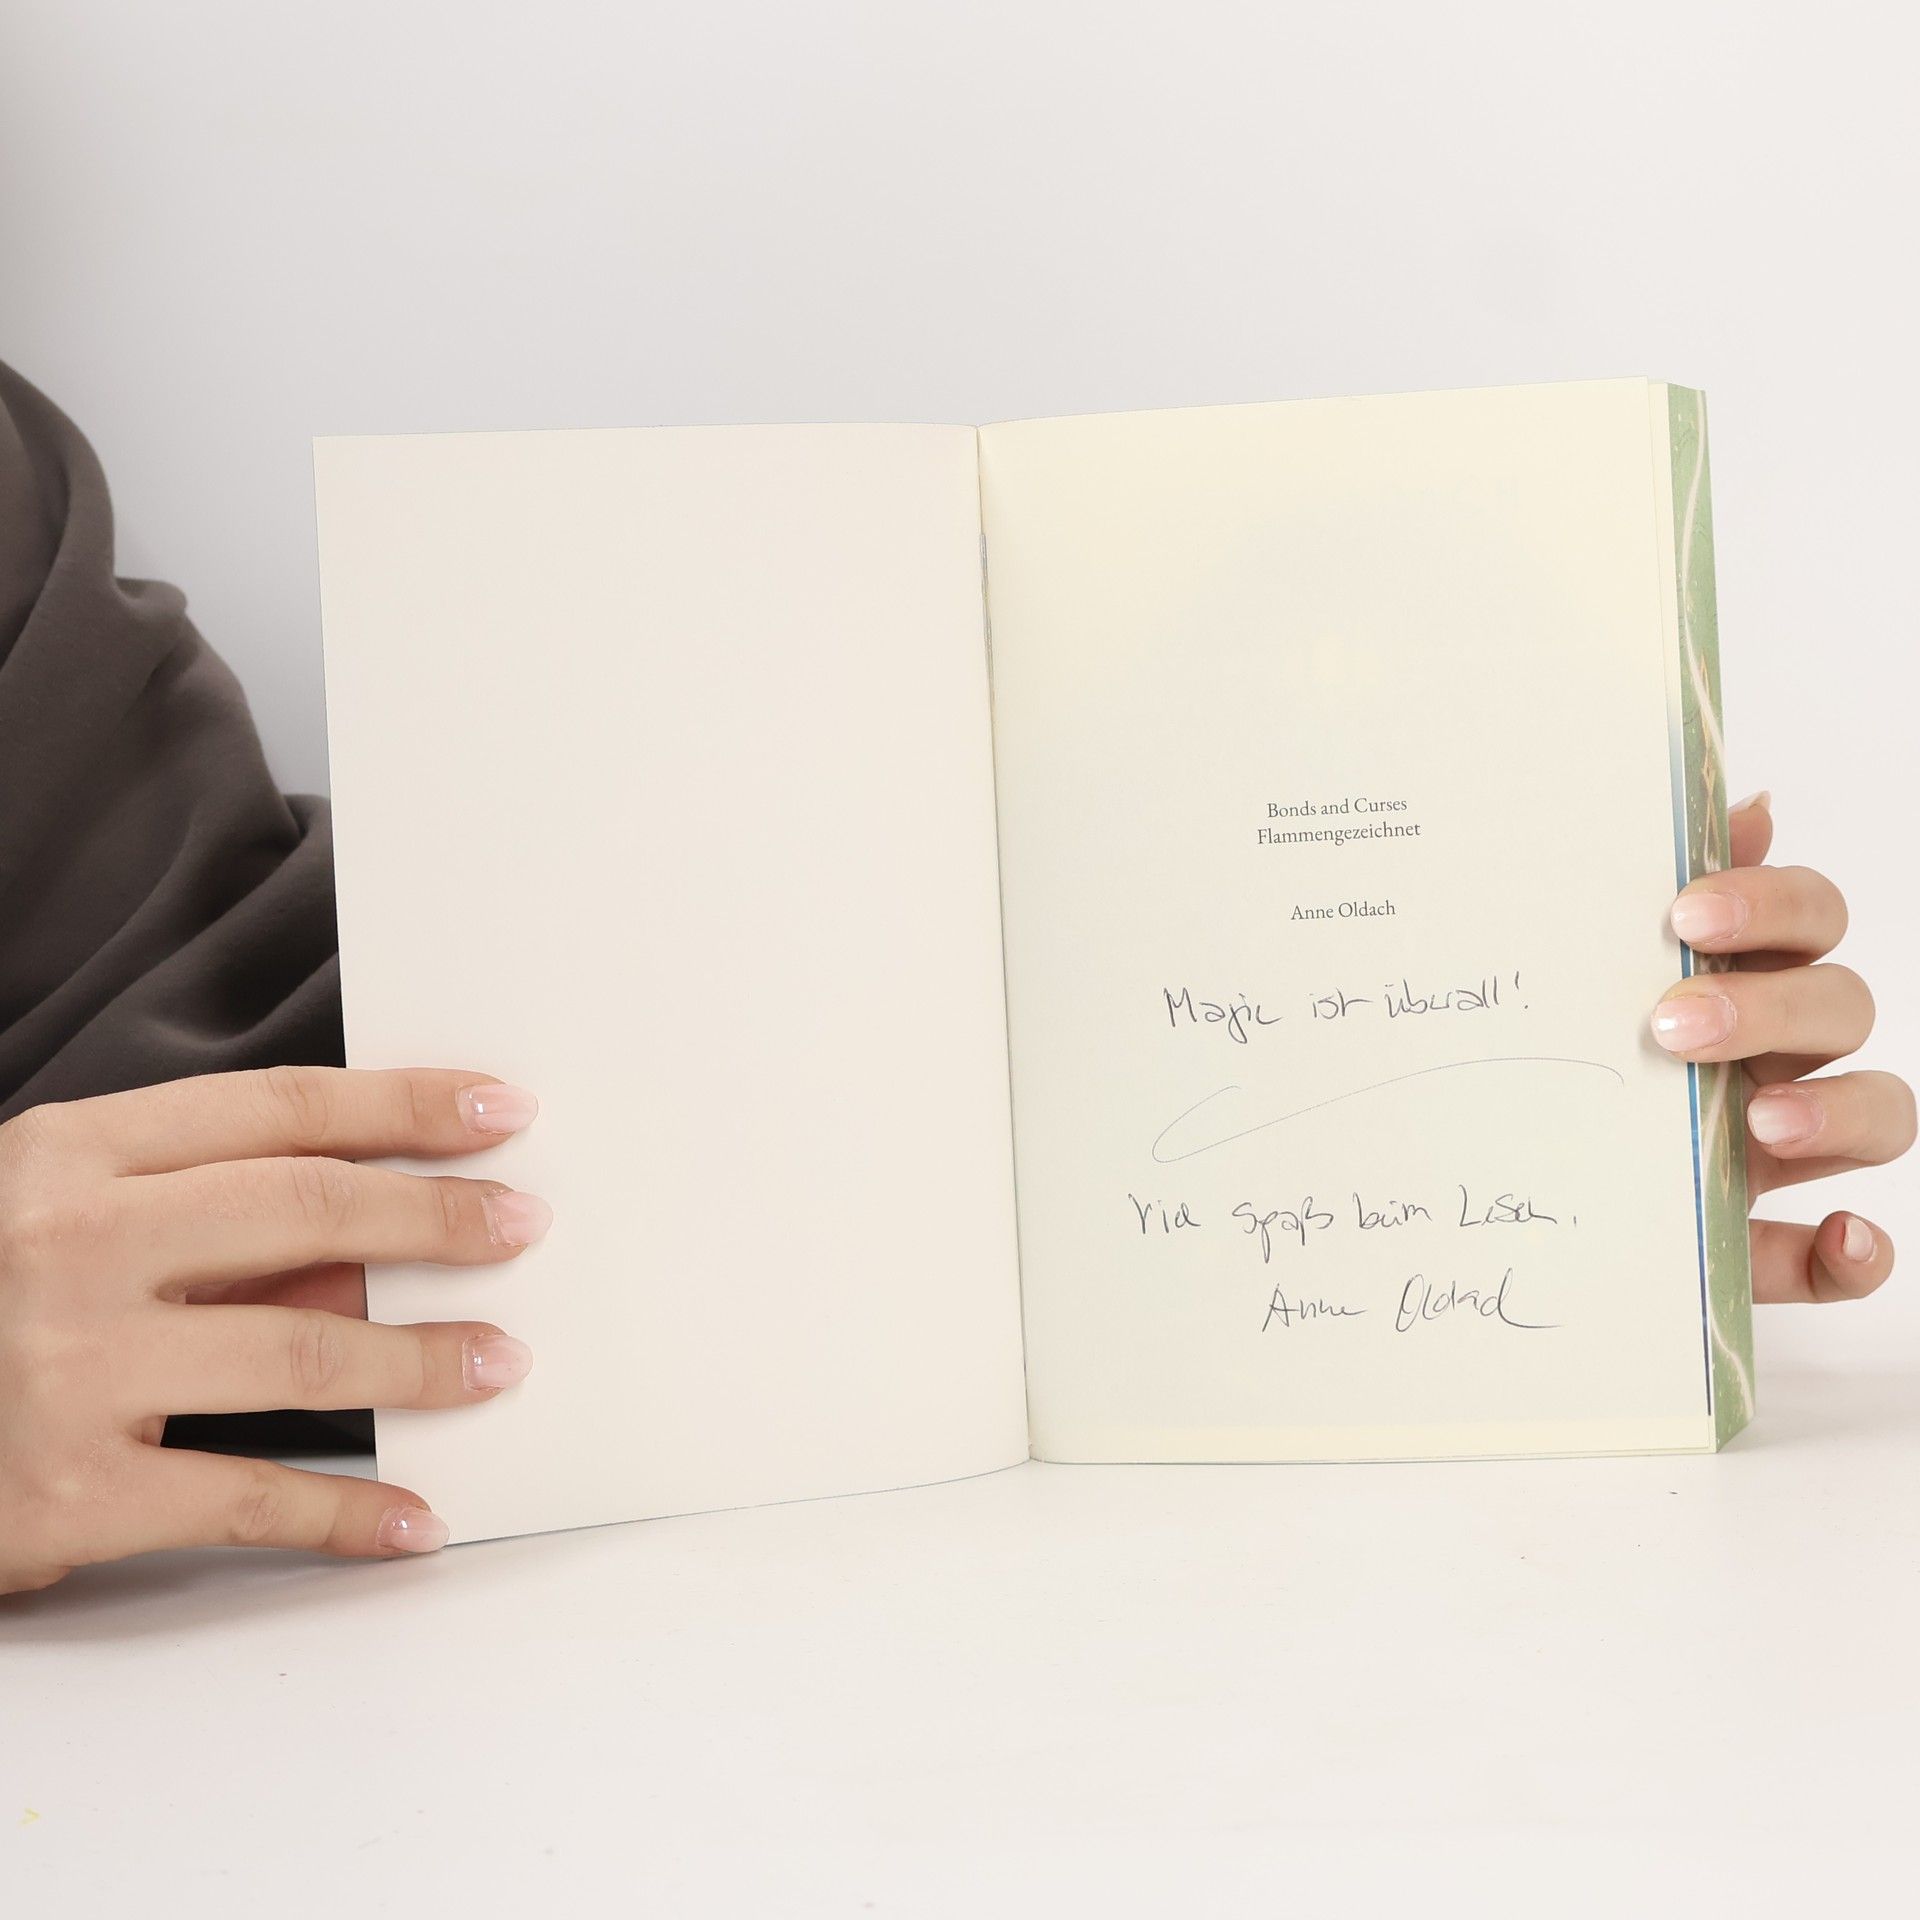 Bonds and Curses
Flammengezeichnet
Anne Oldach
Magie ist überall!
Viel Spaß beim Lesen.
Anne Oldach